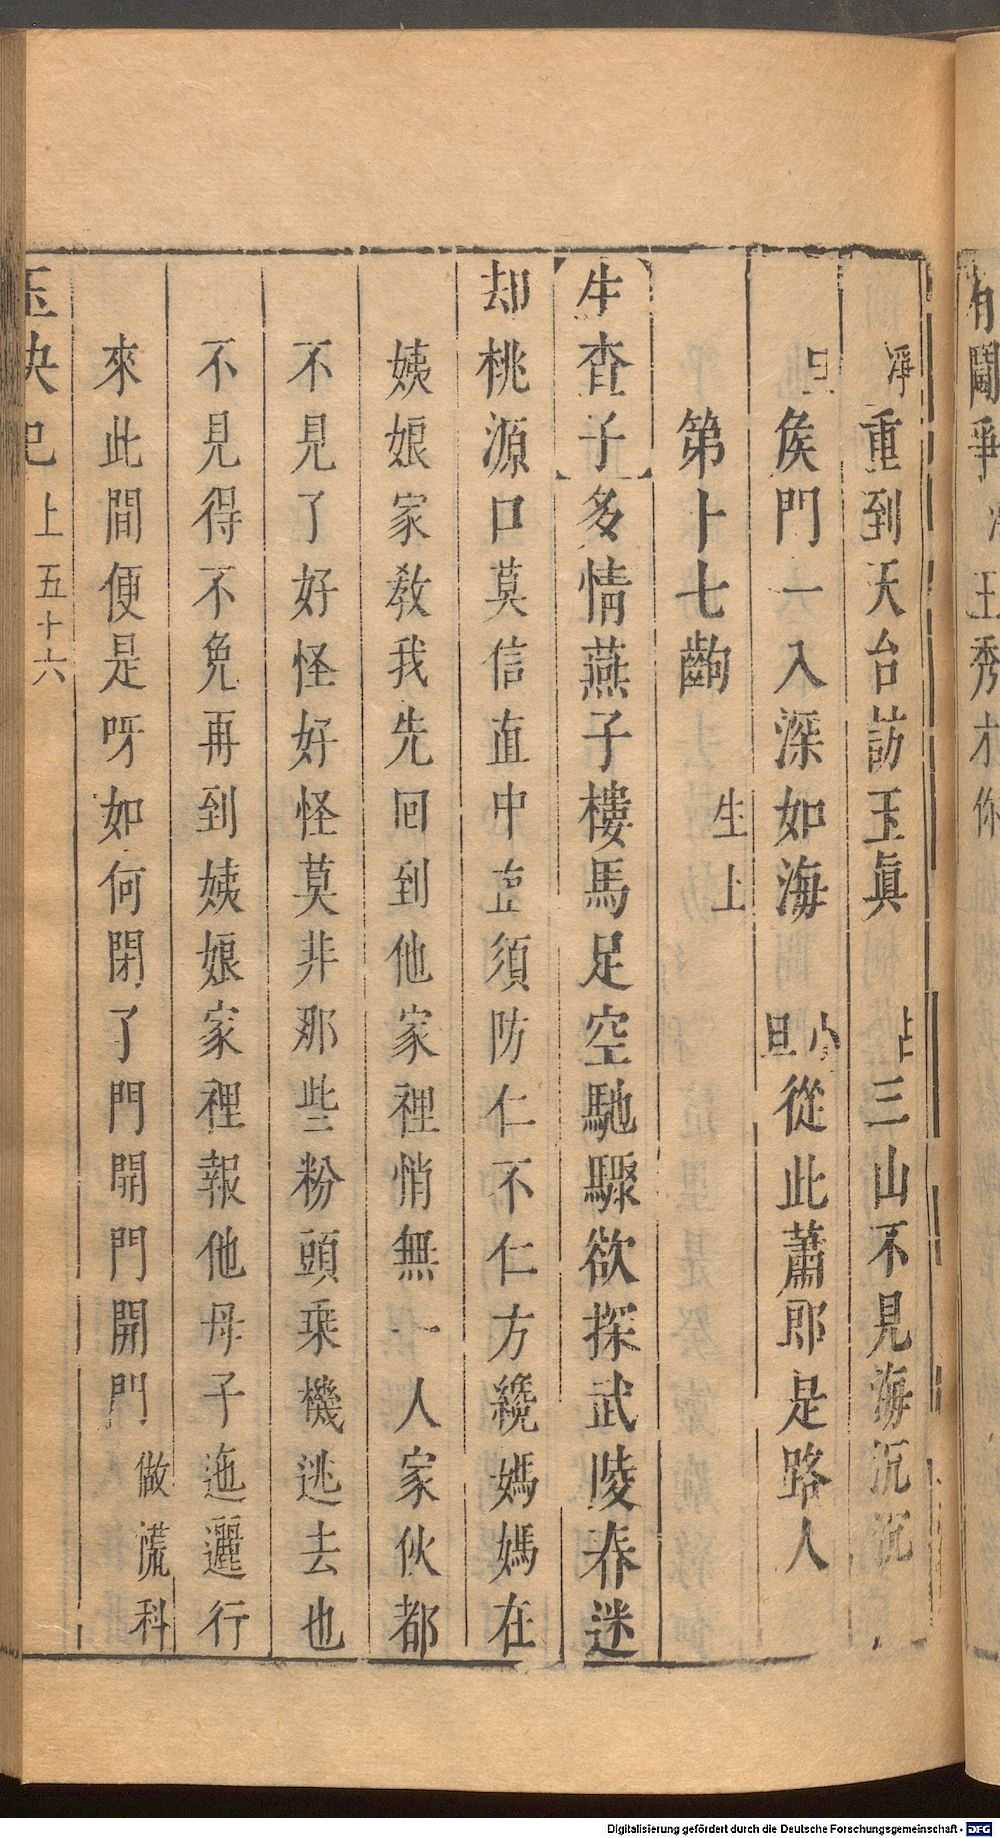 有鬪爭 王秀才你
淨 重到天台訪玉眞 占 三山不見海沉沉
旦 矦門一入深如海 小旦 從此蕭郎是路人
第十七齣 生上
【生查子】多情燕子樓馬足空馳驟欲探武陵春迷
却桃源口莫信直中直須防仁不仁方纔媽媽在
姨娘家教我先回到他家裡悄無一人家伙都
不見了好怪好怪莫非那些粉頭乗機逃去也
不見得不免再到姨娘家裡報他母子迤邐行
來此間便是呀如何閉了門開門開門 做慌科
玉玦記 上 五十六
Digitalisierung gefördert durch die Deutsche Forschungsgemeinschaft - DFG